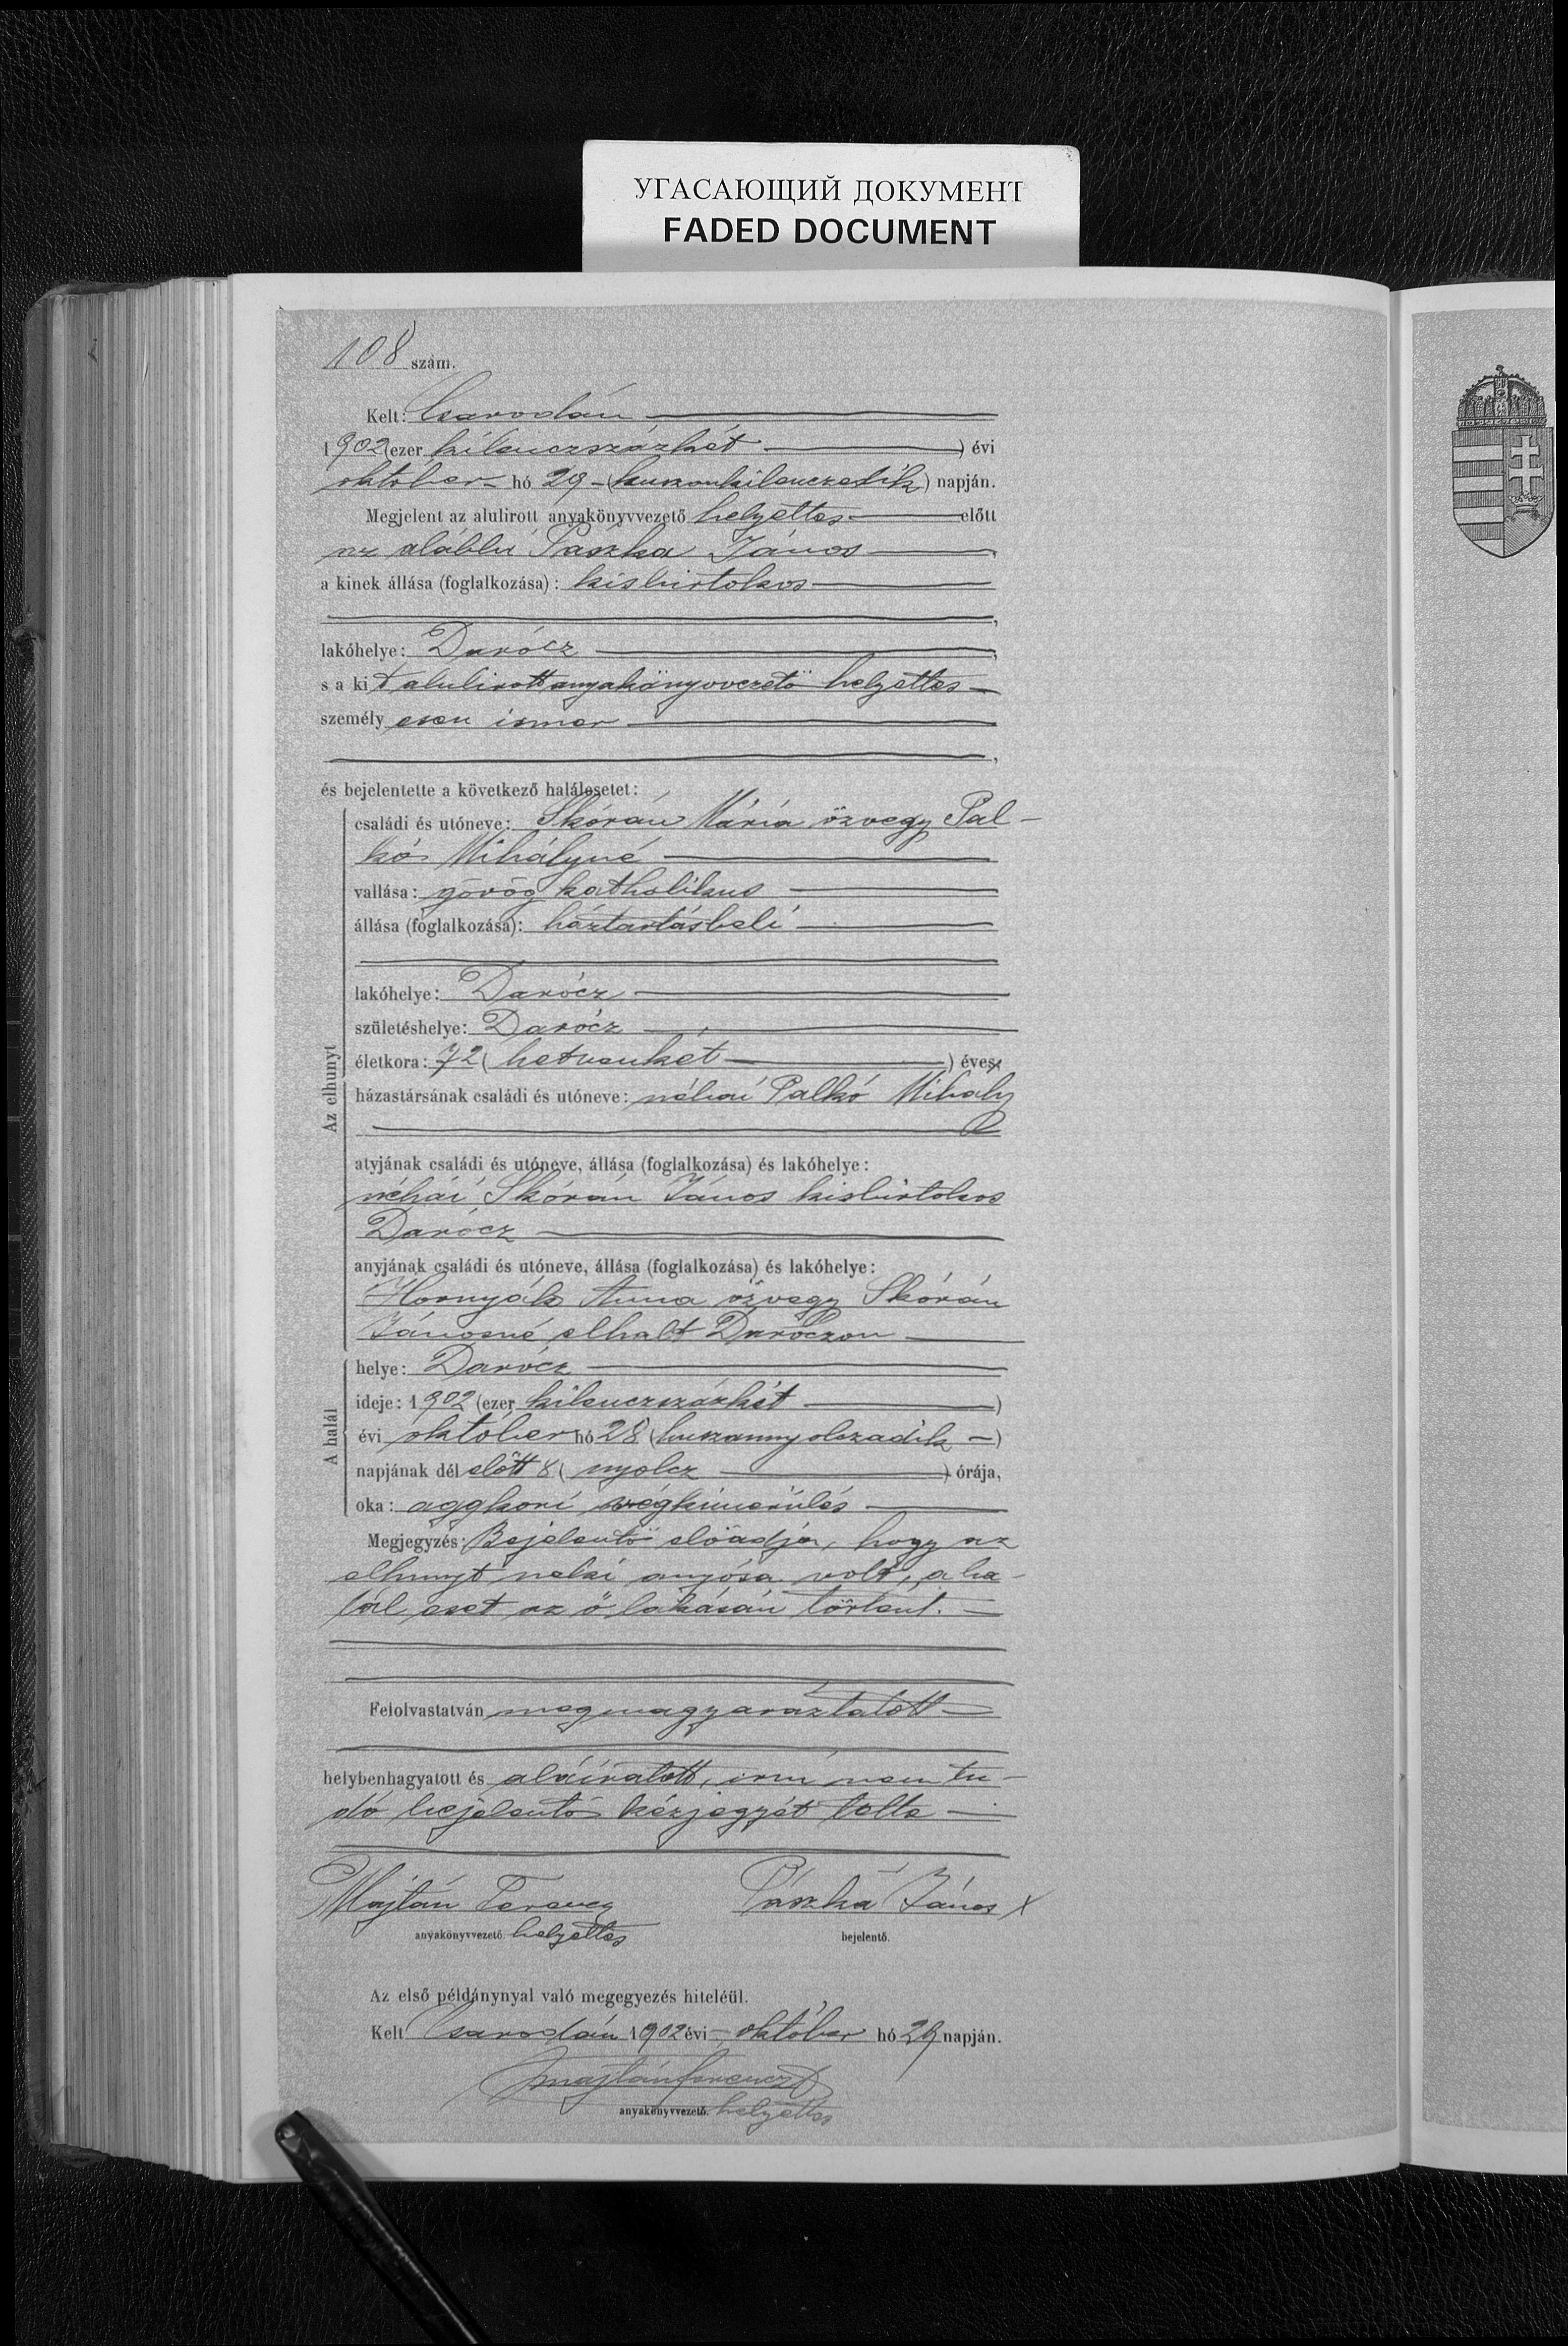 УГАСАЮЩИЙ ДОКУМЕНТ
FADED DOCUMENT
108 szám.
Kelt: Csarodán
1902 (ezer kilenczszázkét ) évi
október hó 29 - (huszonkilenczedik) napján.
Megjelent az alulirott anyakönyvvezető helyettes előtt
az alábbi Pászka János ,
a kinek állása (foglalkozása): kisbirtokos
,
lakóhelye: Darócz ,
s a ki t alulirott anyakönyvvezető helyettes
személy esen ismer
,
és bejelentette a következő halálesetet:
családi és utóneve: Skórán Mária özvegy Pal-
kó Mihályné
vallása: görög katholikus
állása (foglalkozása): háztartásbeli
lakóhelye: Darócz
születéshelye: Darócz
életkora: 72 ( hetvenkét ) éves
házastársának családi és utóneve: néhai Palkó Mihály
atyjának családi és utóneve, állása (foglalkozása) és lakóhelye:
néhái Skórán János kisbirtokos
Darócz
anyjának családi és utóneve, állása (foglalkozása) és lakóhelye:
Hornyák Anna özvegy Skórán
Jánosné elhalt Daróczon
Az elhunyt
helye: Darócz
ideje: 1902 (ezer kilenczszázkét )
évi október hó 28 (huszonnyolczadik -)
napjának dél előtt 8 ( nyolcz ) órája,
oka: aggkori végkimerülés
A halál
Megjegyzés: Bejelentő előadja, hogy az
elhunyt neki anyósa volt, a ha-
lál eset az ő lakásán történt.
Felolvastatván megmagyaráztatott
helybenhagyatott és aláiratott, irni nem tu-
dó bejelentő kézjegyét tette
Majtán Ferencz Pászka János x
anyakönyvvezető helyettes bejelentő.
Az első példánynyal való megegyezés hiteléül.
Kelt Csarodán 1902 évi október hó 29 napján.
Majtán Ferencz
anyakönyvvezető. helyettes